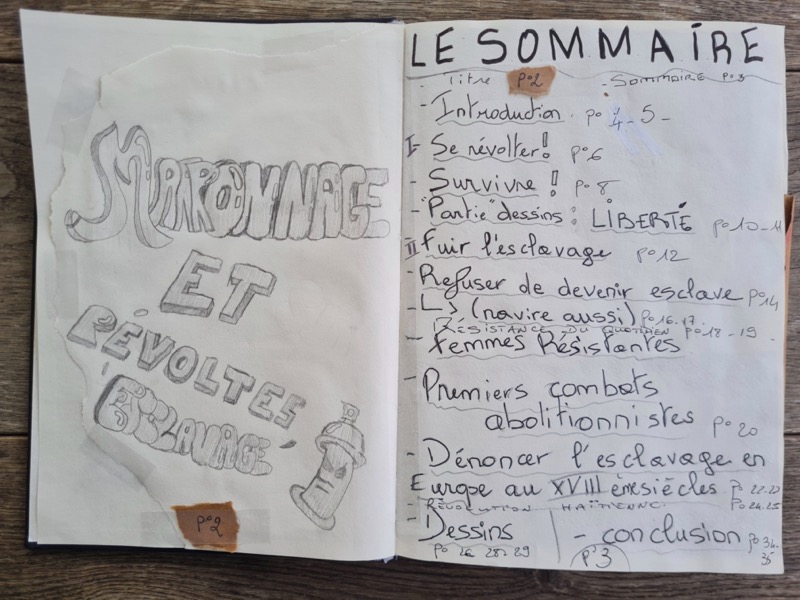 MARRONNAGE
ET
RÉVOLTES
ESCLAVAGE
po2
LE SOMMAIRE
- Titre po2 - SOMMAIRE po3
- Introduction. po 4-5-
I- Se révolter! po6
- Survivre! po8
- "Partie" dessins: LIBERTÉ po10-11
II fuir l'esclavage po12
- Refuser de devenir esclave po14
- L> (navire aussi) po16-17
RÉSISTANCE DU QUOTIDIEN po18-19
- femmes Résistantes
- Premiers combats
abolitionnistes po20
- Dénoncer l'esclavage en
Europe au XVIII èmesiècles po 22-23
- RÉVOLUTION HAÏTIENNE. po24.25
- Dessins - conclusion po34-
35
po 26 28-29
po3